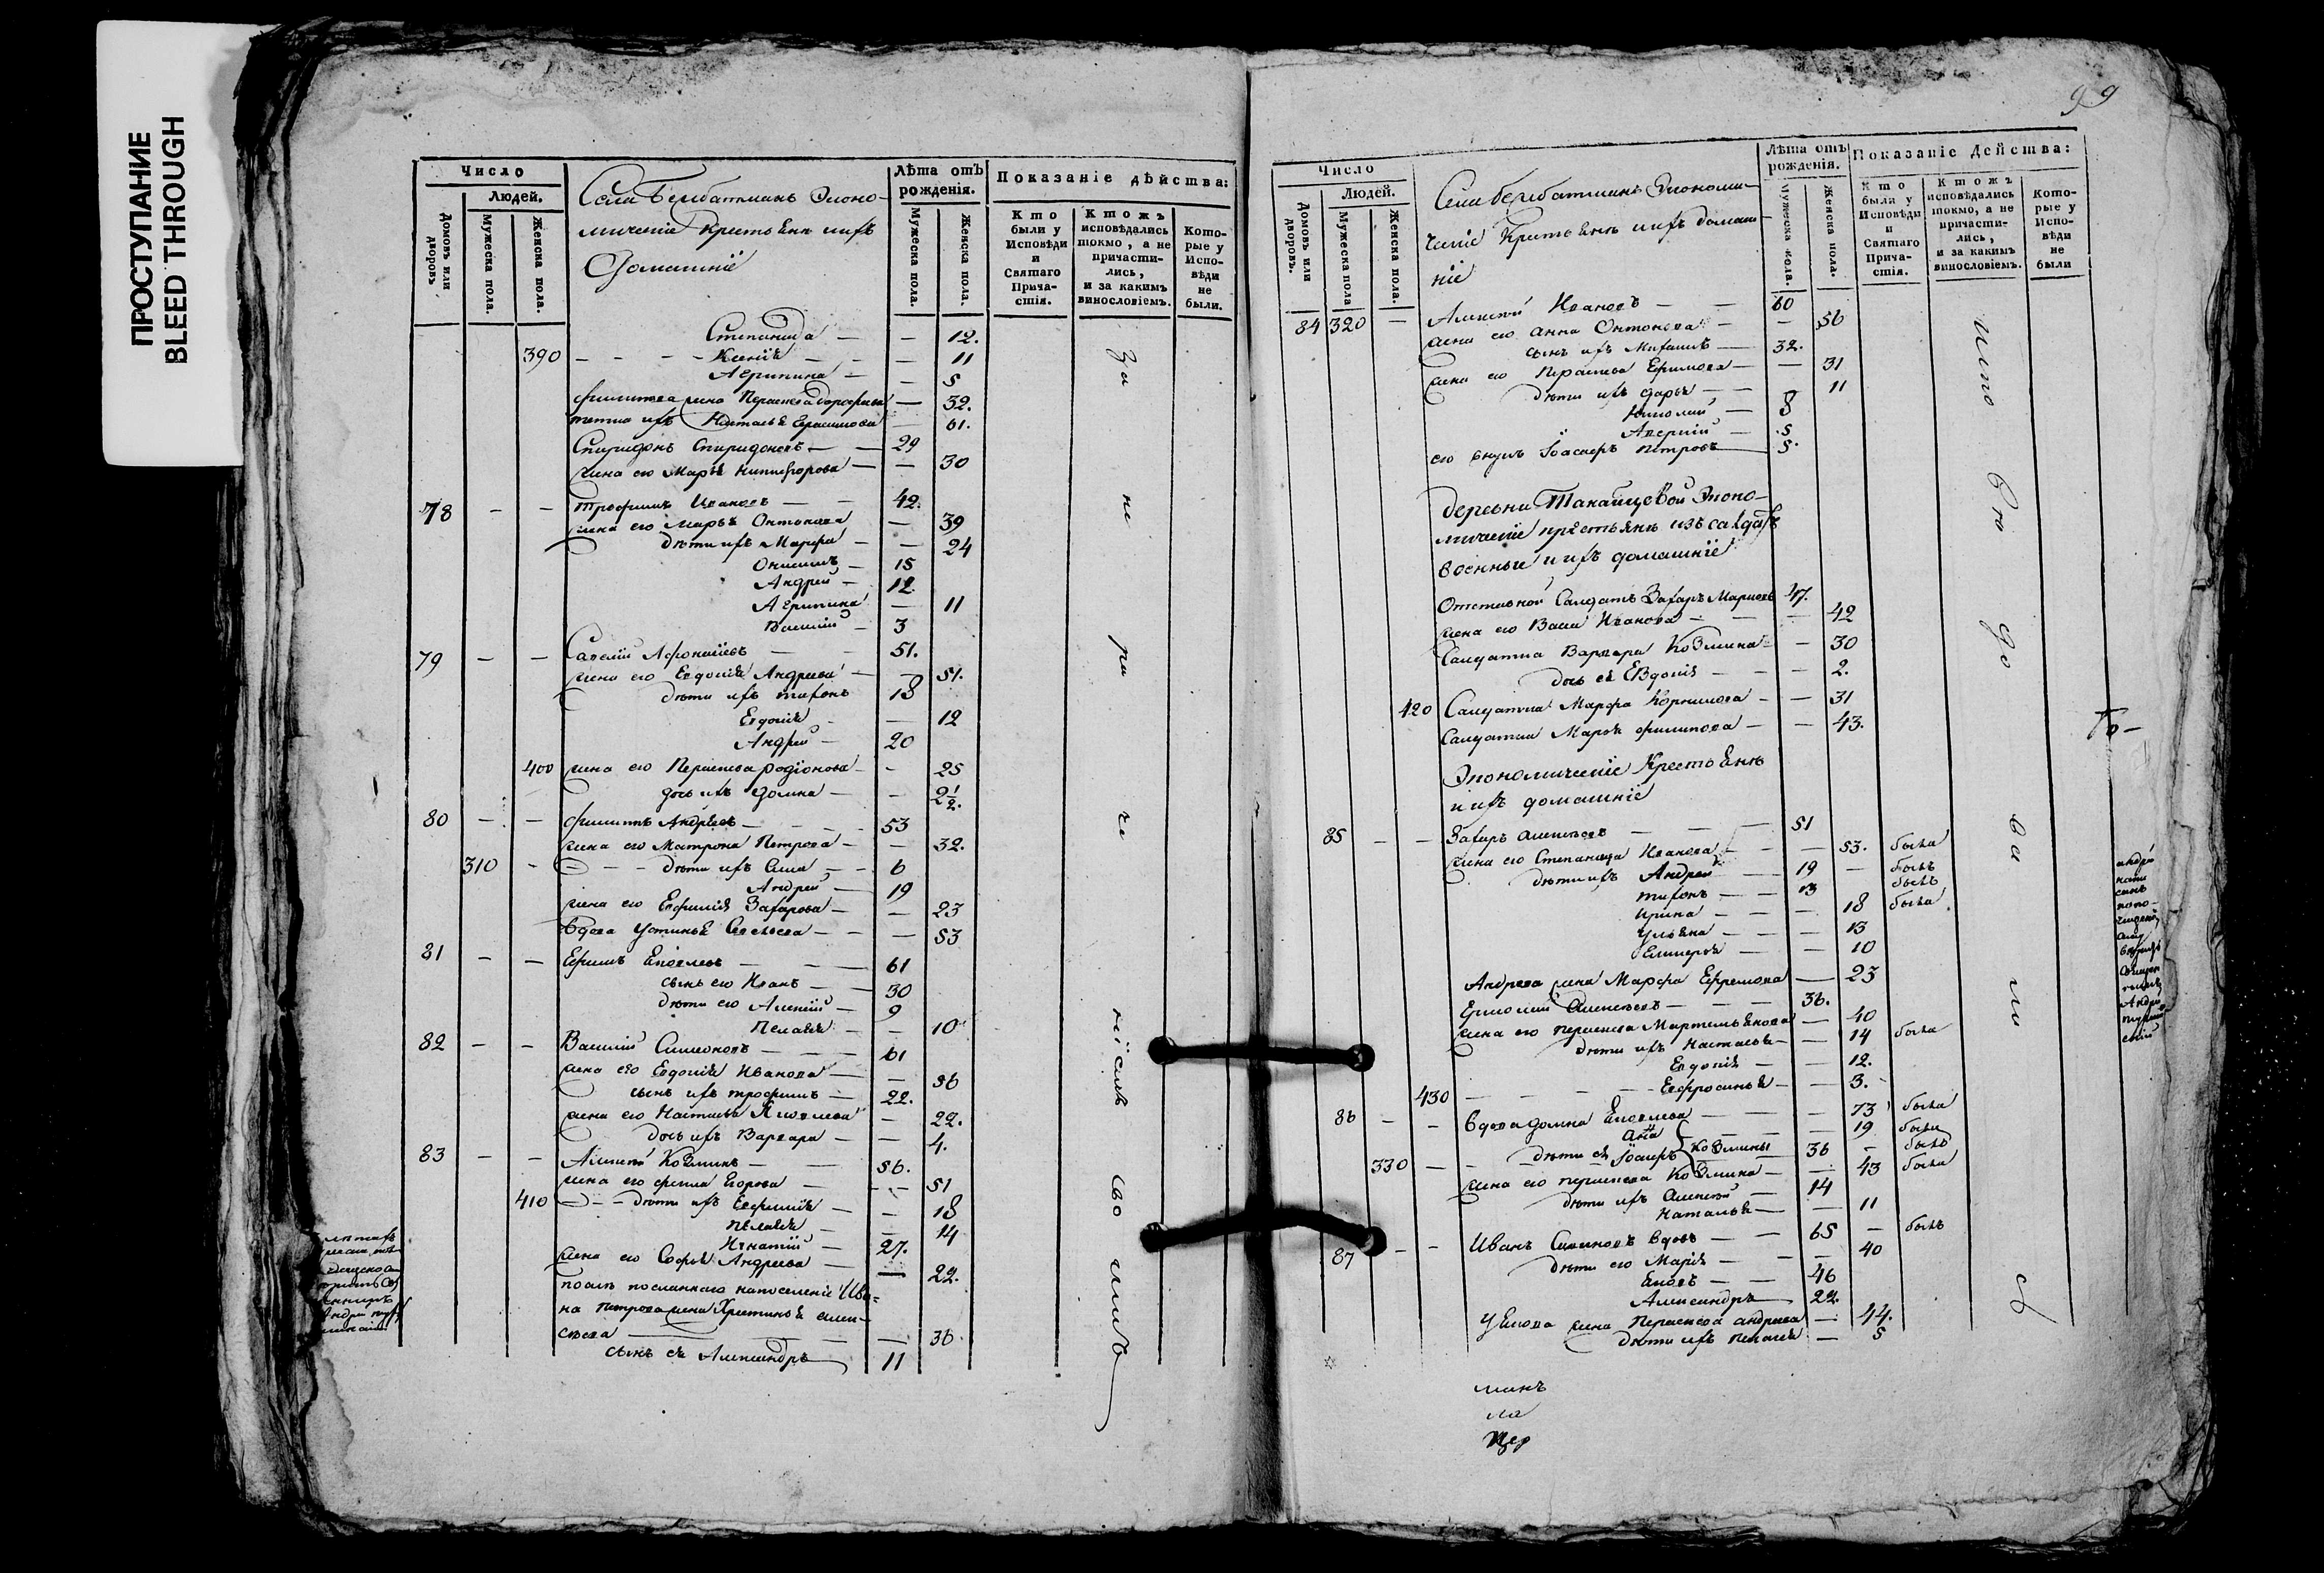 ПРОСТУПАНИЕ
BLEED THROUGH
Число
Людей.
Домовъ или дворовъ
Мужеска пола.
Женска пола.
Села Бембатманъ Эконо-
мическіе Крестьянъ иихъ
Домашніе
Лѣта отъ рожденія.
Мужеска пола.
Женска пола.
Показаніе дѣйства:
Кто были у Исповѣди и Святаго Прича-стія.
Ктожъ исповѣдались токмо, а не причасти-лись, и за какимъ винословіемъ.
Кото-рые у Испо-вѣди не были.
Степанида — — 12.
390 - - - - Ксенія — — 11
Агрипина — — 5
филипова жена Параскева дорофеева — 32.
тетка ихъ Наталья Герасимова — 61.
Спиридонъ Спиридоновъ — 29
жена его Марья Никифорова — — 30
78 - - Трофимъ Ивановъ — 42.
жена его Марья Онтонова — 39
дѣти ихъ Марфа — — 24
Онисимъ — 15
Андрей — 12
Агрипина — 11
Василій — 3
79 — — Савелій Афонасіевъ — 51.
жена его Евдокія Андреева — 51.
дѣти ихъ тихонъ 18
Евдокія — 12
Андрей — 20
400 жена его Параскева родіонова — - 25
дочь ихъ домна — - 2½.
80 - - филиппъ Андреевъ — 53
жена его Матрона Петрова — — 32.
310 - - - дѣти ихъ Сила — 6
Андрей — 19
жена его Евфимія Захарова — — 23
вдова Устинья Савельева — - — 53
81 - — Ефимъ Яковлевъ — 61
сынъ его Иванъ — 30
дѣти его Алексѣй — 9
Пелагея — - 10
82 - - Василій Симеоновъ — 61
жена его Евдокія Иванова — 56
сынъ ихъ трофимъ — 22.
жена его Настасья Яковлева — 22.
дочь ихъ Варвара — — 4.
83 — — Алексѣй Козминъ — 56.
жена его фекла Егорова — - - 51
410 - - дѣти ихъ Евфимія — - 18
Пелагея — — 14
Игнатій — 27.
жена его Софья Андреева — — 22.
послѣ посланнаго напоселеніе Ива-
на Петрова жена Христинья алек-
сѣева — — 36
сынъ ея Александръ 11
99
Число
Людей.
Домовъ или дворовъ.
Мужеска пола
Женска пола.
Села бембатманъ Экономи-
ческіе Крестьянъ иихъ домаш-
ніе
Лѣта отъ рожденія.
Мужеска пола.
Женска пола.
Показаніе Дѣйства:
Кто были у Исповѣди и Святаго Прича-стія.
Ктожъ исповѣдались токмо, а не причасти-лись, и за какимъ винословіемъ.
Кото-рые у Испо-вѣди не были
84 320 — Алексѣй Ивановъ — — 60
жена его анна Онтонова — — 56
сынъ ихъ Михаилъ — 32.
жена его Параскева Ефимова — — 31
дѣти ихъ дарья — - 11
Николай — 8
Аверкій — 5
его внукъ Іоасафъ Петровъ — 5.
деревни Танайцовой Эконо-
мическіе крестьянъ изъ салдатъ
военные и ихъ домашніе
Отставной Салдатъ Захаръ Марковъ 47.
жена его Васса Иванова — — 42
Салдатка Варвара Козмина — - 30
дочь ея Евдокія — - - 2.
420 Салдатка Марфа Корнилова — — 31
Салдатка Марья филипова — - 43.
Экономическіе Крестьянъ
и ихъ домашніе
85 - - Захаръ алексѣевъ — — 51
жена его Степанида Иванова — — 53. была
дѣти ихъ Андрей — 19 — былъ
тихонъ — — 13 былъ
Ирина — — 18 была
Ульяна — — — 13
Гликерія — — 10
Андреева жена Марфа Ефремова — 23
Ермолай алексѣевъ — — 36.
жена его параскева Мартемьянова — 40
дѣти ихъ Настасья — — 14 была
Евдокія — — 12.
430 — — — Евфросинья — — 3.
86 - - Вдова домна Яковлева — — 73 была
дѣти ея Анна — — 19 была
330 — — Іосифъ Козмины 36 - былъ
жена его параскева Козмина — — 43 была
дѣти ихъ алексѣй — 14
Наталья — — 11
87 - - Иванъ Симоновъ вдовъ — — 65 - былъ
дѣти его Марія — — 40
Яковъ — — 46
Александръ — 22.
Уякова жена Параскева андреева — 44.
дѣти ихъ пелагея — 5